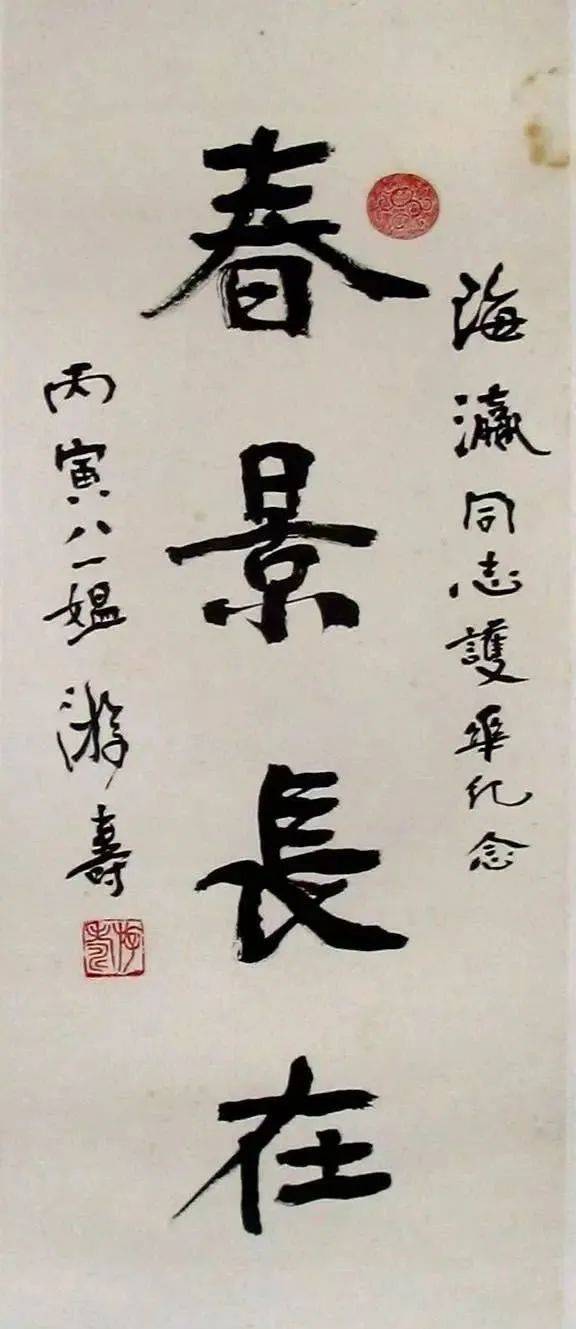 海瀛同志護華紀念
春景長在
丙寅八一媪游壽
游壽